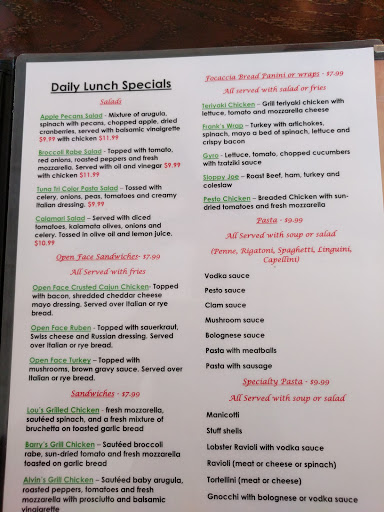 Daily Lunch Specials
Salads
Apple Pecans Salad - Mixture of arugula,
spinach with pecans, chopped apple, dried
cranberries, served with balsamic vinaigrette
$9.99 with chicken $11.99
Broccoli Rabe Salad - Topped with tomato,
red onions, roasted peppers and fresh
mozzarella. Served with oil and vinegar $9.99
with chicken $11.99
Tuna Tri Color Pasta Salad - Tossed with
celery, onions, peas, tomatoes and creamy
Italian dressing. $9.99
Calamari Salad - Served with diced
tomatoes, kalamata olives, onions and
celery. Tossed in olive oil and lemon juice.
$10.99
Open Face Sandwiches - 17.99
All Served with fries
Open Face Crusted Cajun Chicken- Topped
with bacon, shredded cheddar cheese
mayo dressing. Served over Italian or rye
bread.
Open Face Ruben - Topped with sauerkraut,
Swiss cheese and Russian dressing. Served
over Italian or rye bread.
Open Face Turkey - Topped with
mushrooms, brown gravy sauce. Served over
Italian or rye bread.
Sandwiches - $7.99
Lou's Grilled Chicken - fresh mozzarella,
sautéed spinach, and a fresh mixture of
bruchetta on toasted garlic bread
Barry's Grill Chicken - Sautéed broccoli
rabe, sun-dried tomato and fresh mozzarella
toasted on garlic bread
Alvin's Grill Chicken - Sautéed baby arugula,
roasted peppers, tomatoes and fresh
mozzarella with prosciutto and balsamic
vinaigrette
Focaccia Bread Panini or wraps - $7.99
All served with salad or fries
Teriyaki Chicken - Grill teriyaki chicken with
lettuce, tomato and mozzarella cheese
Frank's Wrap - Turkey with artichokes,
spinach, mayo a bed of spinach, lettuce and
crispy bacon
Gyro - Lettuce, tomato, chopped cucumbers
with tzatziki sauce
Sloppy Joe - Roast Beef, ham, turkey and
coleslaw
Pesto Chicken - Breaded Chicken with sun-
dried tomatoes and fresh mozzarella
Pasta - $9.99
All Served with soup or salad
(Penne, Rigatoni, Spaghetti, Linguini,
Capellini)
Vodka sauce
Pesto sauce
Clam sauce
Mushroom sauce
Bolognese sauce
Pasta with meatballs
Pasta with sausage
Specialty Pasta - $9.99
All Served with soup or salad
Manicotti
Stuff shells
Lobster Ravioli with vodka sauce
Ravioli (meat or cheese or spinach)
Tortellini (meat or cheese)
Gnocchi with bolognese or vodka sauce